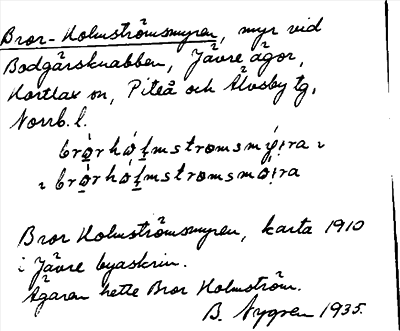 Bror-Holmströmsmyren, myr vid
Bodgårsknabben, Jävre ägor,
Hortlax sn, Piteå och Älvsby tg,
Norrb. l.
brórhó̱lmstromsmýi̩ra ɩ
ɩ brórhó̱lmstromsmói̩ra
Bror Holmströmsmyren, karta 1910
i Jävre byaskrin.
Ägaren hette Bror Holmström.
B. Nygren 1935.